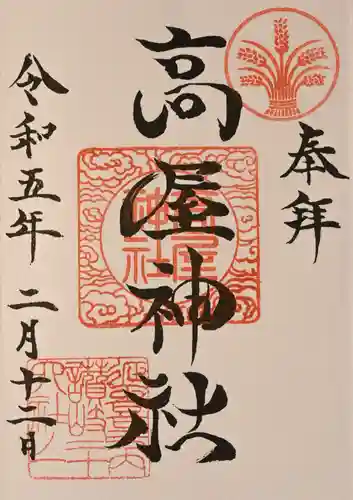 奉拝
高屋神社
令和五年 二月十二日
高屋神社